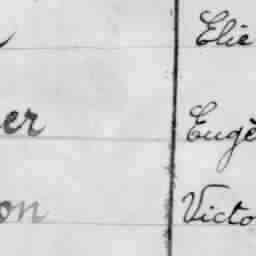 Elie
er Eugè
on Victo